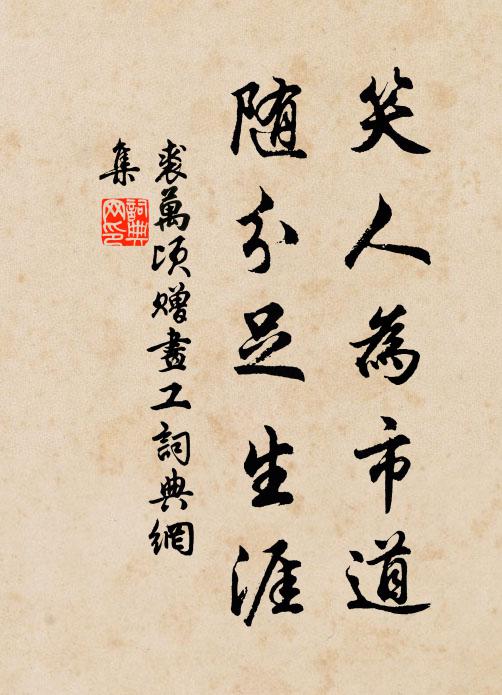 笑人為市道
随分足生涯
裘萬頃贈畫工詞典網
集
詞典
网印